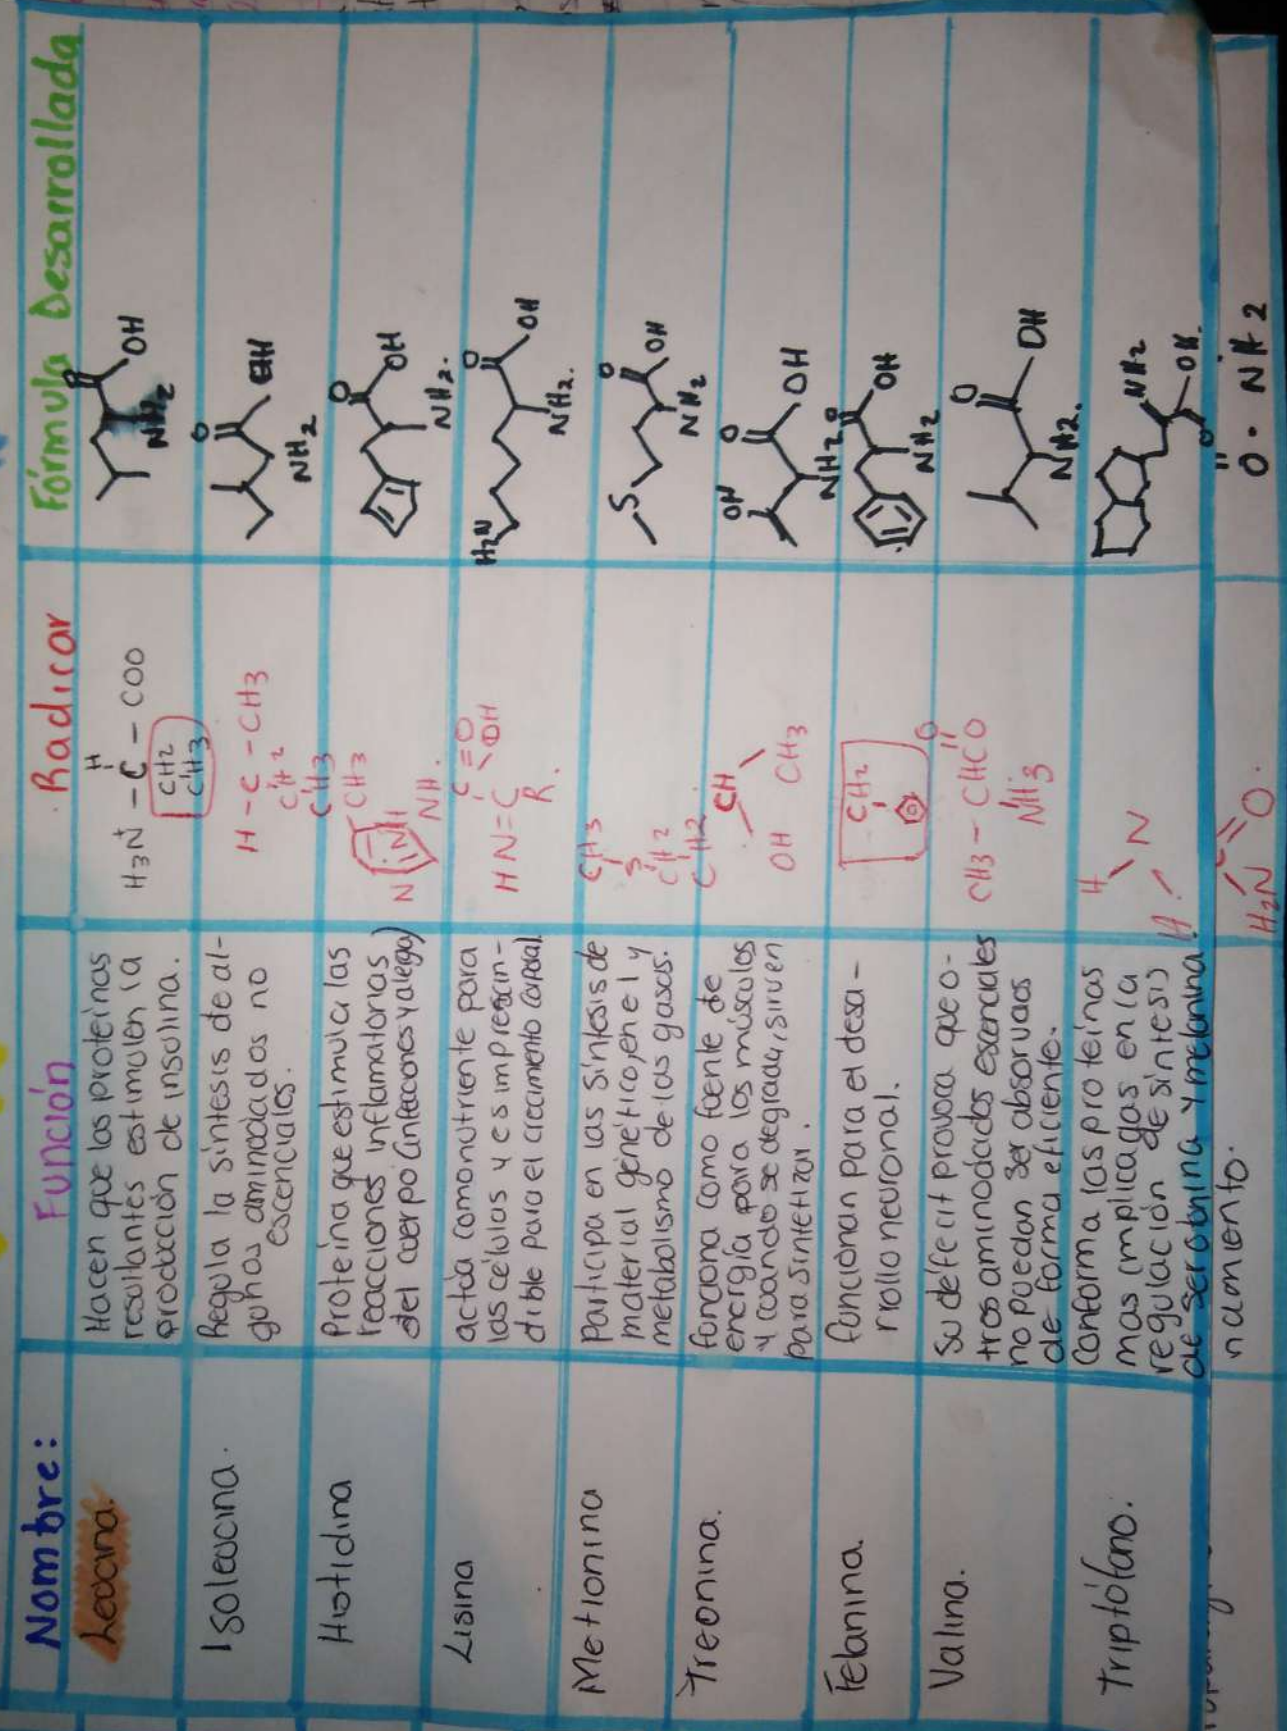 Nombre:
Función
Radicar
Fórmula Desarrollada
Leocina.
Hacen que las proteinas
resultantes estimulen la
producción de insulina.
H
H3N+ - C - COO
CH2
CH3
O
OH
NH2
Isoleucina.
Regula la síntesis de al-
gunos aminoácidos no
escenciales.
H - C - CH3
CH2
CH3
O
OH
NH2
Histidina
Proteína que estimula las
reacciones inflamatorias
del cuerpo (infecciones y alergia)
CH3
NH
N
NH.
O
OH
NH2.
Lisina
actúa como nutriente para
las células y es imprescin-
dible para el crecimiento corporal.
C = O
OH
HN = C
R.
H2N
O
OH
NH2.
Metionina
Participa en las síntesis de
material genético, en el y
metabolismo de las gasas.
CH3
S
CH2
CH2
S
O
OH
NH2
Treonina.
funciona como fuente de
energía para los músculos
y cuando se degrada, sirven
para sintetizar.
CH
OH CH3
OH
O
OH
NH2
Felanina
funcionan para el desa-
rrollo neuronal.
CH2
O
OH
NH2
Valina.
Su défecit provoca que o-
tros aminoácidos escenciales
no puedan ser absorvidos
de forma eficiente.
O
CH3 - CHCO
NH3
O
OH
NH2.
Triptófano.
Conforma las proteínas
mas implicadas en la
regulación de síntesis
de serotonina y melanina
H
N
H
NH2
OH.
O
namiento.
H2N
O.
O
NH2